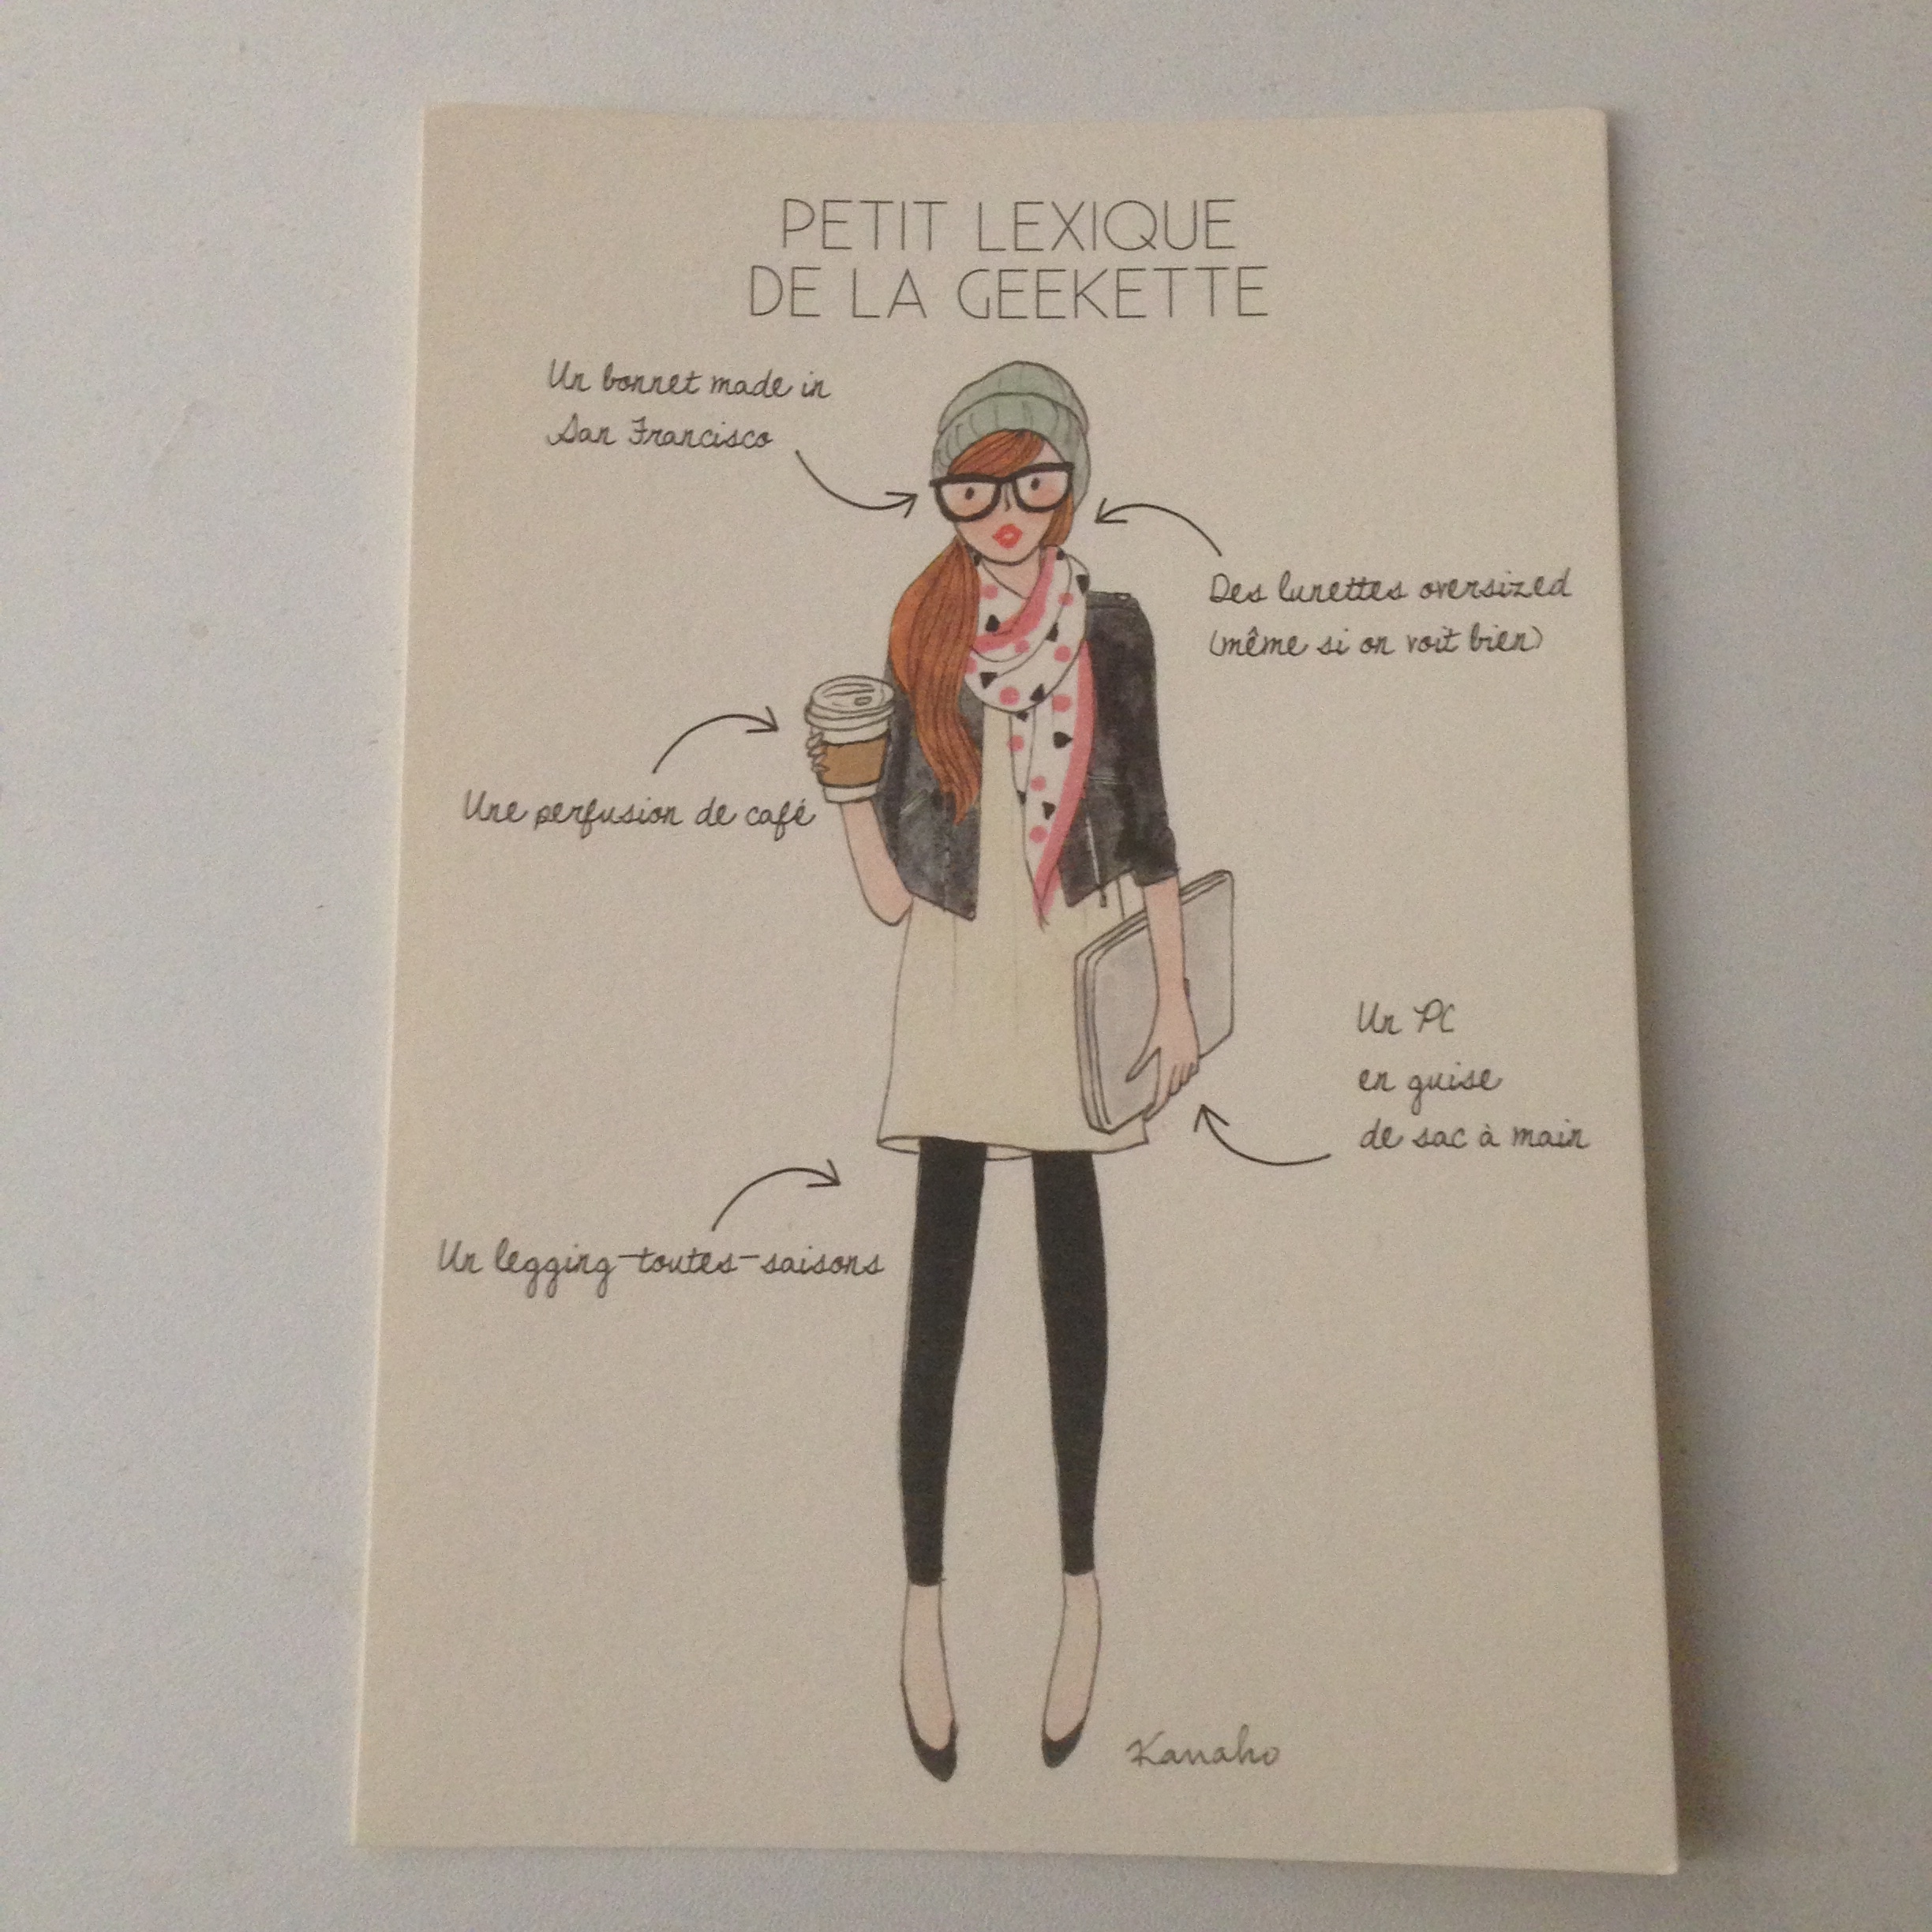 PETIT LEXIQUE
DE LA GEEKETTE
Un bonnet made in
San Francisco
Des lunettes oversized
(même si on voit bien)
Une perfusion de café
Un PC
en guise
de sac à main
Un legging-toutes-saisons
Kanako